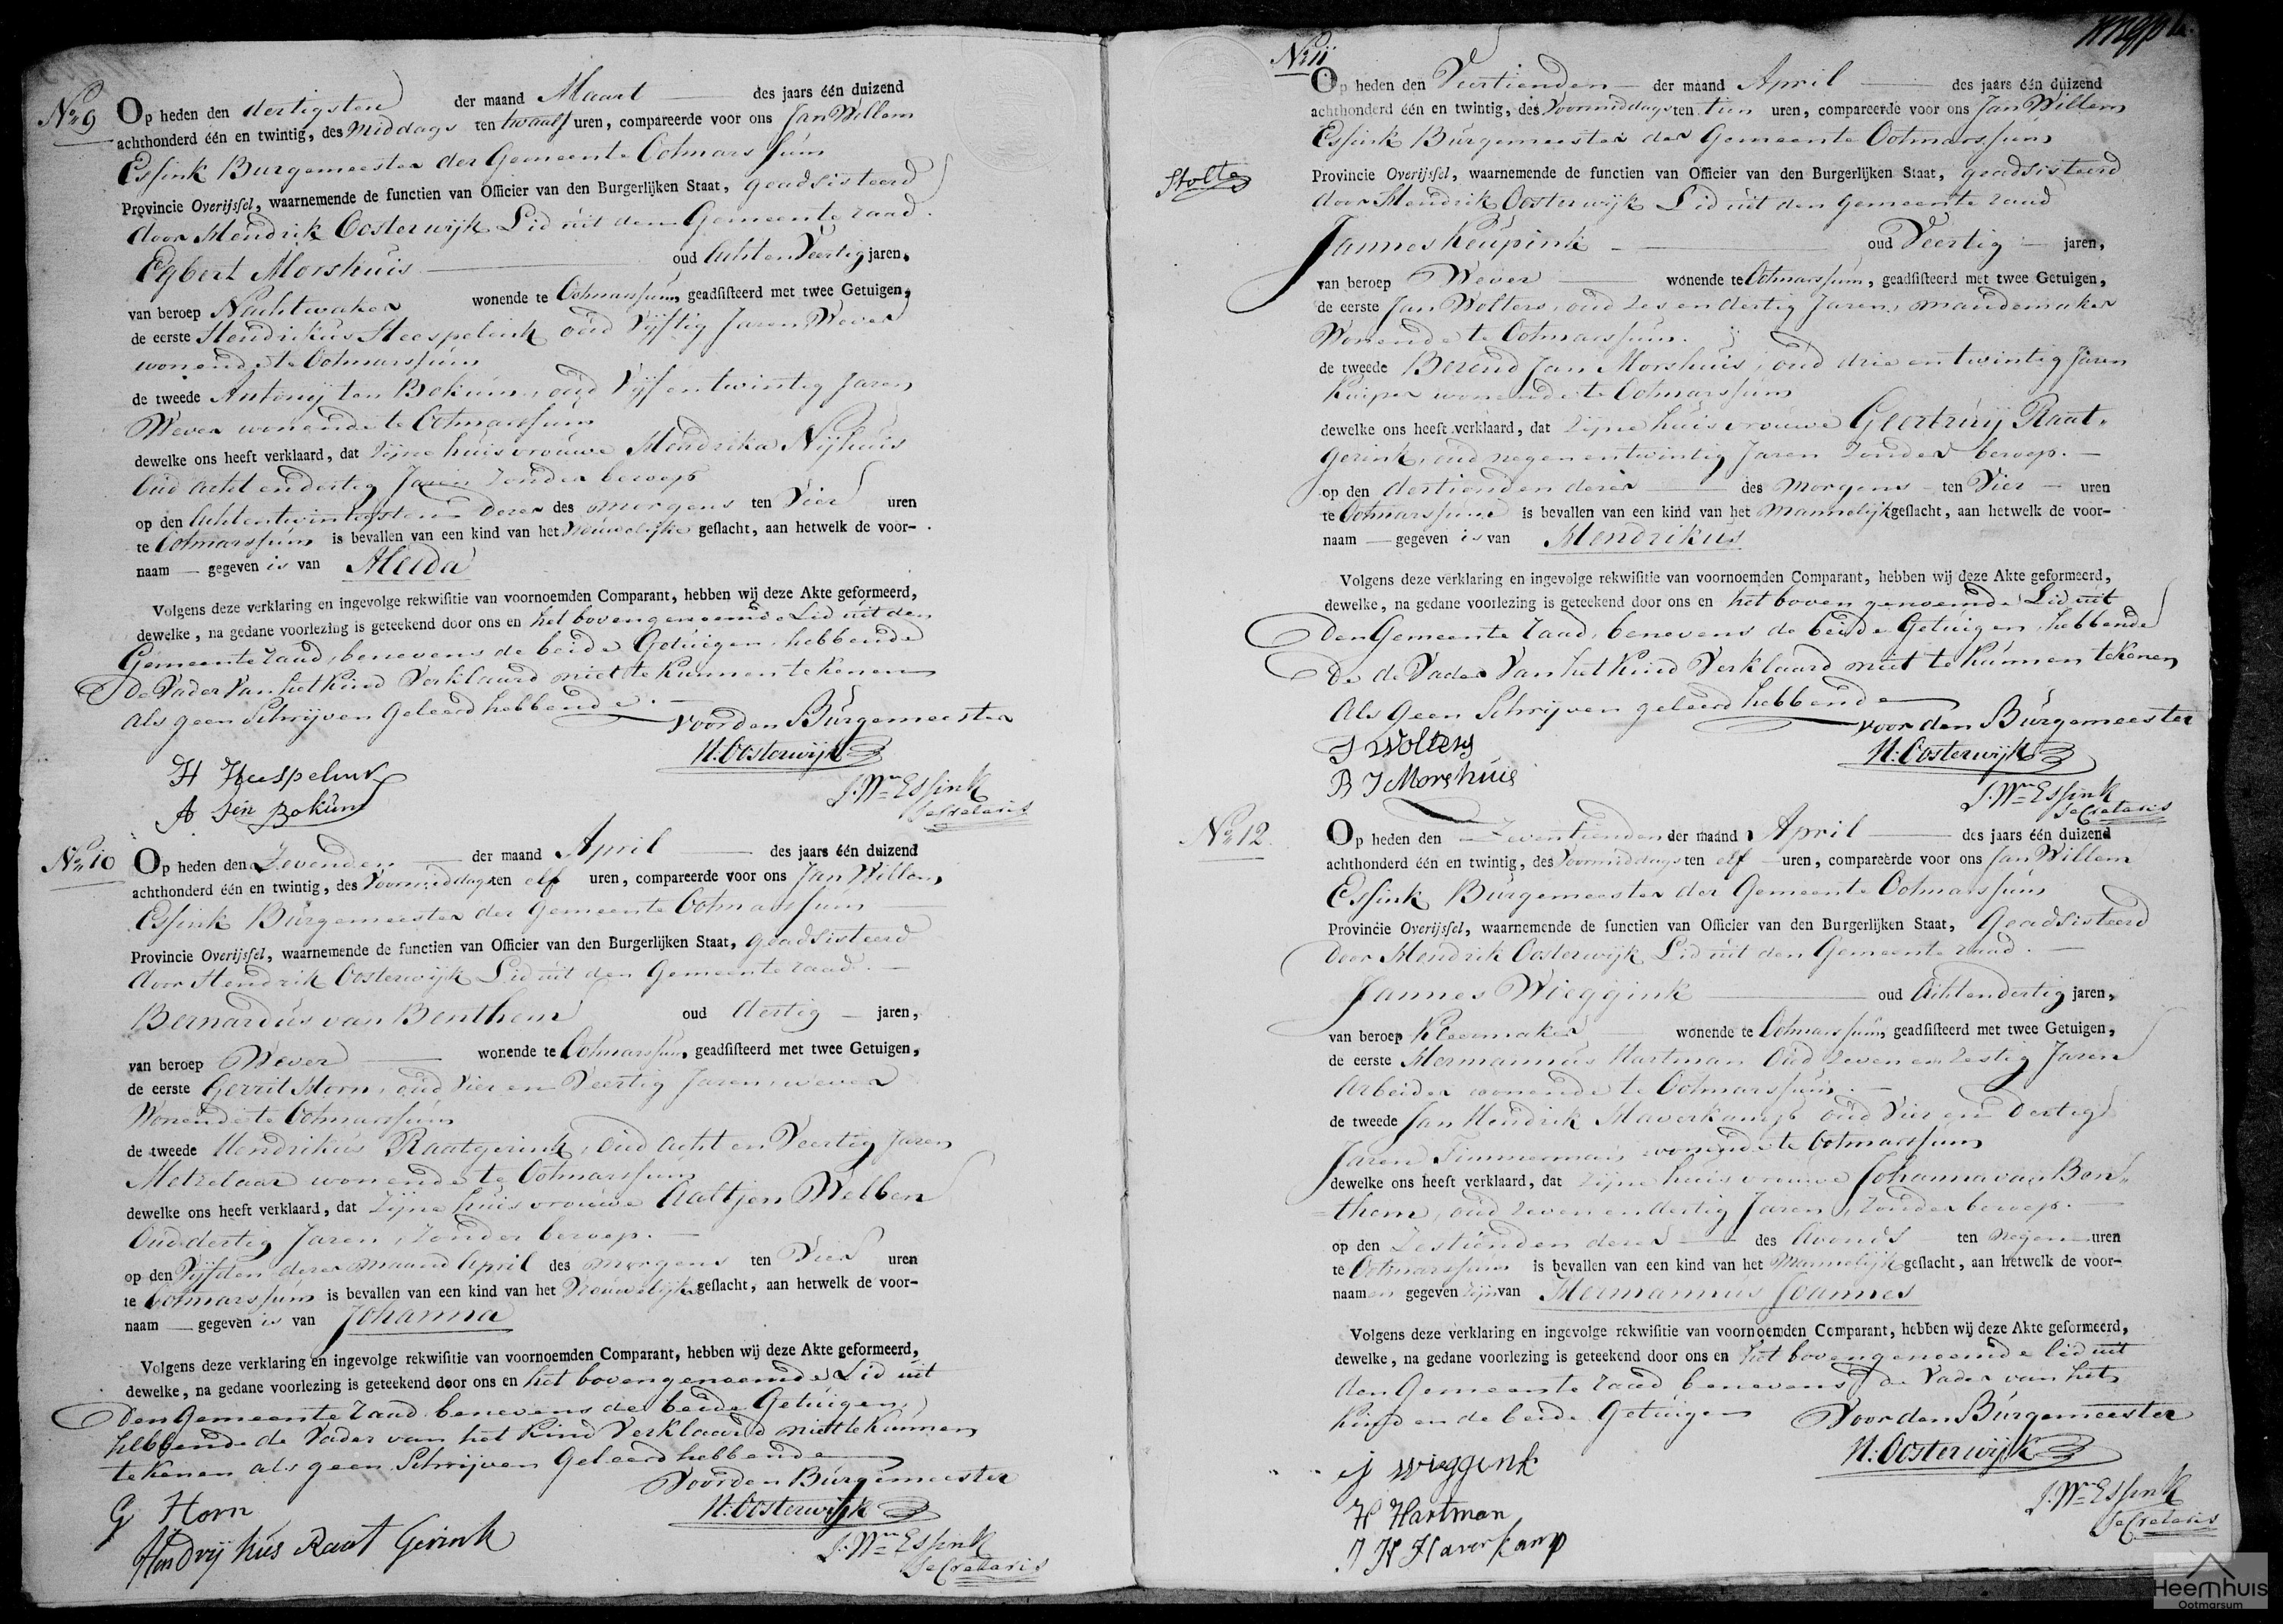 No 9
Op heden den dertigsten der maand Maart des jaars één duizend
achthonderd één en twintig, des middags ten twaalf uren, compareerde voor ons Jan Willem
Essink Burgemeester der Gemeente Ootmarssum
Provincie Overijssel, waarnemende de functien van Officier van den Burgerlijken Staat, geadsisteerd
door Hendrik Oosterwijk Lid uit den Gemeente raad.
Egbert Morshuis oud Achtenveertig jaren,
van beroep Nachtwaker wonende te Ootmarssum, geadsisteerd met twee Getuigen,
de eerste Hendrikus Heespelink oud Vijftig Jaren Wever
wonende te Ootmarssum
de tweede Antonij ten Bokum, oud Vijfentwintig Jaren
Wever wonende te Ootmarssum
dewelke ons heeft verklaard, dat zijne huisvrouwe Hendrika Nijhuis
Oud acht endertig Jaren zonder beroep
op den Achtentwintigsten dezer des morgens ten Vier uren
te Ootmarssum is bevallen van een kind van het Vrouwelijke geslacht, aan hetwelk de voor-
naam — gegeven is van Aleida
Volgens deze verklaring en ingevolge rekwisitie van voornoemden Comparant, hebben wij deze Akte geformeerd,
dewelke, na gedane voorlezing is geteekend door ons en het bovengenoemde Lid uit den
Gemeente raad, benevens de beide Getuigen, hebbende
de Vader van het Kind Verklaard niet te Kunnen tekenen
als geen Schrijven Geleerd hebbende.
Voor den Burgemeester
H. Oosterwijk
H Heespelink
A ten Bokum
J. Wm Essink
Secretaris
No 10
Op heden den Zevenden der maand April des jaars één duizend
achthonderd één en twintig, des Voormiddags ten elf uren, compareerde voor ons Jan Willem
Essink Burgemeester der Gemeente Ootmarssum
Provincie Overijssel, waarnemende de functien van Officier van den Burgerlijken Staat, geadsisteerd
door Hendrik Oosterwijk Lid uit den Gemeente raad.
Bernardus van Benthem oud dertig jaren,
van beroep Wever wonende te Ootmarssum, geadsisteerd met twee Getuigen,
de eerste Gerrit Horn, oud Vier en Veertig Jaren, wever
Wonende te Ootmarssum
de tweede Hendrikus Raatgerink, oud acht en Veertig Jaren
Metzelaar wonende te Ootmarssum
dewelke ons heeft verklaard, dat zijne huisvrouwe Aaltjen Welben
Oud dertig Jaren, zonder beroep.
op den Vijfden dezer maand April des morgens ten Vier uren
te Ootmarssum is bevallen van een kind van het Vrouwelijk geslacht, aan hetwelk de voor-
naam — gegeven is van Johanna
Volgens deze verklaring en ingevolge rekwisitie van voornoemden Comparant, hebben wij deze Akte geformeerd,
dewelke, na gedane voorlezing is geteekend door ons en het bovengenoemde Lid uit
den Gemeente raad benevens de beide Getuigen,
hebbende de Vader van het Kind Verklaard niet te Kunnen
tekenen als geen Schrijven Geleerd hebbende
Voor den Burgemeester
H. Oosterwijk
G Horn
Hendrijkus Raat Gerink
J. Wm Essink
Secretaris
No 11
Op heden den Veertienden der maand April des jaars één duizend
achthonderd één en twintig, des Voormiddags ten tien uren, compareerde voor ons Jan Willem
Essink Burgemeester der Gemeente Ootmarssum
Stolte
Provincie Overijssel, waarnemende de functien van Officier van den Burgerlijken Staat, geadsisteerd
door Hendrik Oosterwijk Lid uit den Gemeente raad
Jannes Keupink oud Veertig jaren,
van beroep Wever wonende te Ootmarssum, geadsisteerd met twee Getuigen,
de eerste Jan Wolters, oud Zes en dertig Jaren, mandemaker
Wonende te Ootmarssum.
de tweede Berend Jan Morshuis, oud drie en twintig Jaren
Kuiper wonende te Ootmarssum
dewelke ons heeft verklaard, dat zijne huisvrouwe Geertruij Raat-
gerink, oud negen entwintig Jaren zonder beroep.
op den dertienden dezer des morgens ten Vier uren
te Ootmarssum is bevallen van een kind van het Mannelijk geslacht, aan hetwelk de voor-
naam — gegeven is van Hendrikus
Volgens deze verklaring en ingevolge rekwisitie van voornoemden Comparant, hebben wij deze Akte geformeerd,
dewelke, na gedane voorlezing is geteekend door ons en het boven genoemde Lid uit
den Gemeente raad, benevens de beide Getuigen, hebbende
de de Vader van het Kind Verklaard niet te Kunnen tekenen
Als Geen Schrijven geleerd hebbende
Voor den Burgemeester
J Wolters
H. Oosterwijk
B J Morshuis
J. Wm Essink
Secretaris
No 12.
Op heden den Zeventienden der maand April des jaars één duizend
achthonderd één en twintig, des Voormiddags ten elf uren, compareerde voor ons Jan Willem
Essink Burgemeester der Gemeente Ootmarssum
Provincie Overijssel, waarnemende de functien van Officier van den Burgerlijken Staat, Geadsisteerd
door Hendrik Oosterwijk Lid uit den Gemeente raad.
Jannes Wieggink oud Achtendertig jaren,
van beroep Kleermaker wonende te Ootmarssum, geadsisteerd met twee Getuigen,
de eerste Hermannus Hartman Oud Zeven en Zestig Jaren
Arbeider wonende te Ootmarssum.
de tweede Jan Hendrik Haverkamp oud Vier en dertig
Jaren Timmerman, wonende te Ootmarssum
dewelke ons heeft verklaard, dat zijne huisvrouwe Johanna van Ben-
them, oud zeven en dertig Jaren, zonder beroep.
op den Zestienden dezer des Avonds ten negen uren
te Ootmarssum is bevallen van een kind van het Mannelijk geslacht, aan hetwelk de voor-
naamen gegeven zijn van Hermannus Joannes
Volgens deze verklaring en ingevolge rekwisitie van voornoemden Comparant, hebben wij deze Akte geformeerd,
dewelke, na gedane voorlezing is geteekend door ons en het bovengenoemde lid uit
den Gemeente raad benevens de Vader van het
Kind en de beide Getuigen
Voor den Burgemeester
H. Oosterwijk
j wieggink
H Hartman
J H Haverkamp
J. Wm Essink
Secretaris
Heemhuis
Ootmarsum